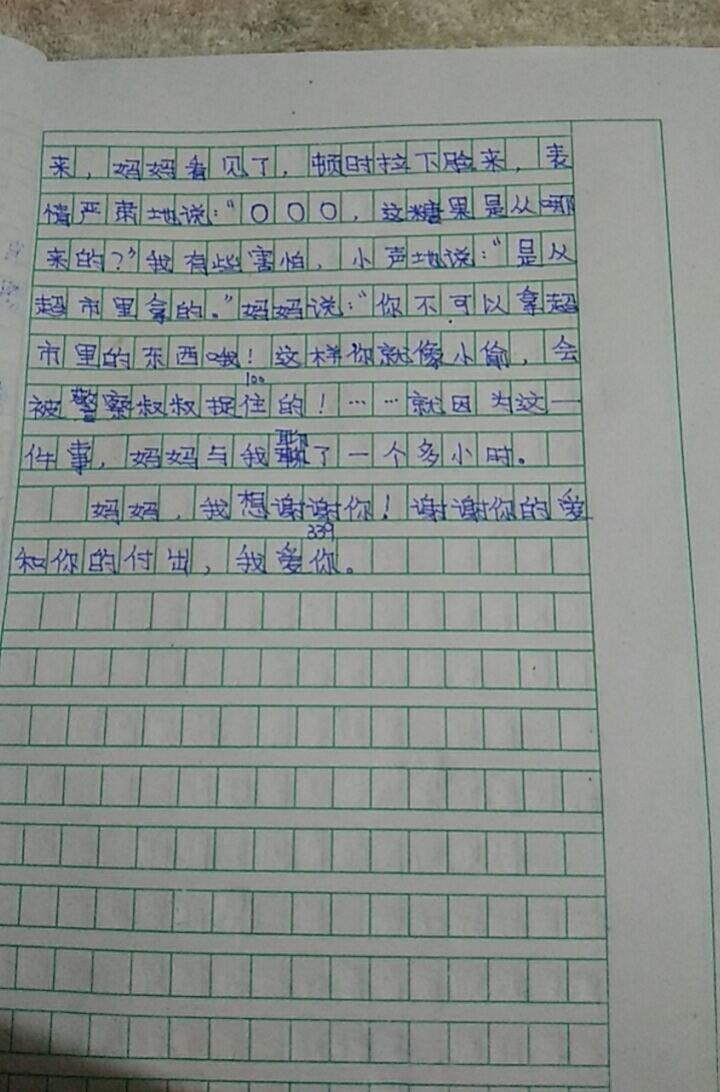 来，妈妈看见了，顿时拉下脸来，表
情严肃地说：“〇〇〇，这糖果是从哪
来的？”我有些害怕，小声地说：“是从
超市里拿的。”妈妈说：“你不可以拿超
市里的东西哦！这样你就像小偷，会
100
被警察叔叔捉住的！……就因为这一
件事，妈妈与我聊了一个多小时。
妈妈，我想谢谢你！谢谢你的爱
339
和你的付出，我爱你。